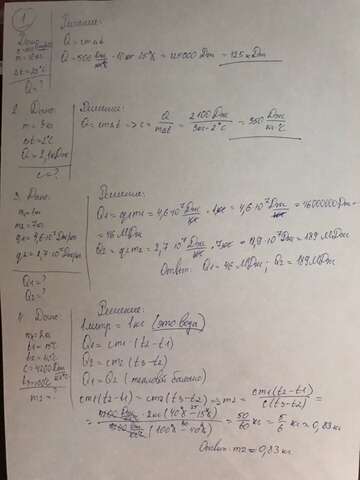 1
Дано:
m = 10кг
Δt = 25°C
Q = ?
Решение:
Q = cmΔt
Q = 500 Дж/кг·°C · 10 кг · 25°C = 125000 Дж = 125 кДж
2. Дано:
m = 3кг
Δt = 2°C
Q = 2,1кДж
c = ?
Решение:
Q = cmΔt => c = Q/mΔt = 2100Дж/3кг·2°C = 350 Дж/кг·°C
3. Дано:
m1 = 1кг
m2 = 7кг
q1 = 4,6·10⁷ Дж/кг
q2 = 2,7·10⁷ Дж/кг
Q1 = ?
Q2 = ?
Решение:
Q1 = q1m1 = 4,6·10⁷ Дж/кг · 1кг = 4,6·10⁷ Дж = 46000000 Дж =
= 46 МДж
Q2 = q2m2 = 2,7·10⁷ Дж/кг · 7кг = 18,9·10⁷ Дж = 189 МДж
Ответ: Q1 = 46 МДж; Q2 = 189 МДж
4. Дано:
m1 = 2кг
t1 = 15°C
t2 = 40°C
c = 4200 Дж/кг·°C
t3 = 100°C
m2 = ?
Решение:
1 литр = 1 кг (это вода)
Q1 = cm1(t2-t1)
Q2 = cm2(t3-t2)
Q1 = Q2 (тепловой баланс)
cm1(t2-t1) = cm2(t3-t2) => m2 = cm1(t2-t1)/c(t3-t2) =
= 4200 Дж/кг·°C · 2кг (40°C-15°C)/4200 Дж/кг·°C (100°C-40°C) = 50/60 кг = 5/6 кг ≈ 0,83 кг
Ответ: m2 = 0,83 кг